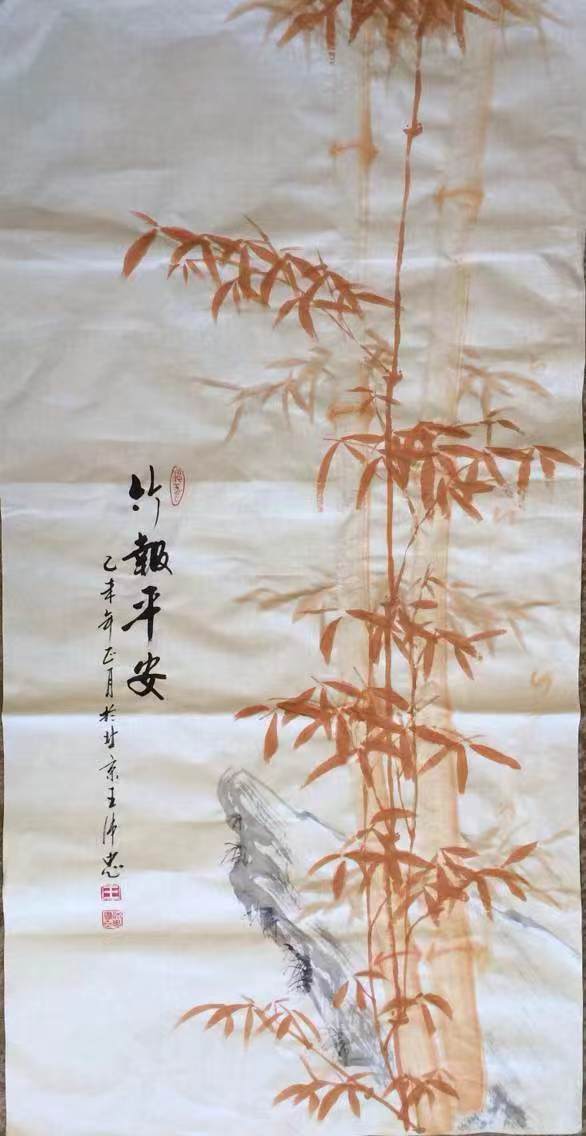 竹報平安
乙年正月於北京王忠
王